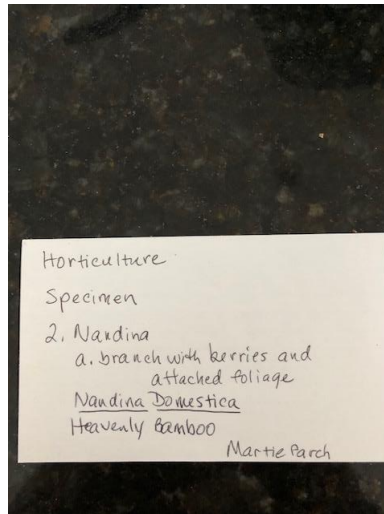 Horticulture
Specimen
2. Nandina
a. branch with berries and
attached foliage
Nandina Domestica
Heavenly Bamboo
Martie Parch